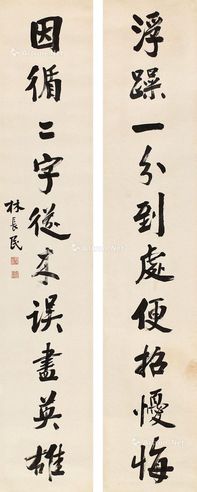 浮躁一分到處便招憂悔
因循二字從来误盡英雄
林長民